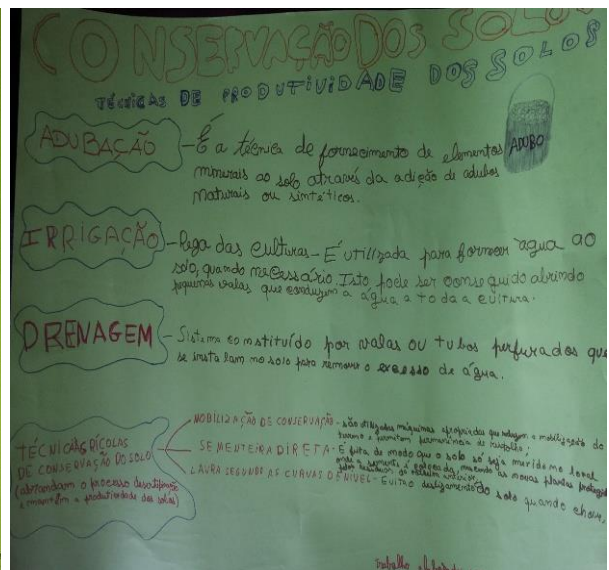 CONSERVAÇÃO DOS SOLOS
TÉCNICAS DE PRODUTIVIDADE DOS SOLOS
ADUBAÇÃO - É a técnica de fornecimento de elementos
minerais ao solo através da adição de adubos
naturais ou sintéticos.
ADUBO
IRRIGAÇÃO - Rega das culturas - É utilizada para fornecer água ao
solo, quando necessário. Isto pode ser conseguido abrindo
pequenas valas que conduzem a água a toda a cultura.
DRENAGEM - Sistema constituído por valas ou tubos perfurados que
se instalam no solo para remover o excesso de água.
TÉCNICAS AGRÍCOLAS
DE CONSERVAÇÃO DO SOLO
(abrandam o processo
e mantêm a produtividade dos solos)
MOBILIZAÇÃO DE CONSERVAÇÃO - são utilizadas máquinas apropriadas que a mobilização do
terreno e permitem permanência de
SEMENTEIRA DIRETA - É feita de modo que o solo só seja no local
onde a semente é colocada, as novas plantas
LAURA SEGUNDO AS CURVAS DE NÍVEL - Evita o deslizamento do solo quando chove.
Trabalho